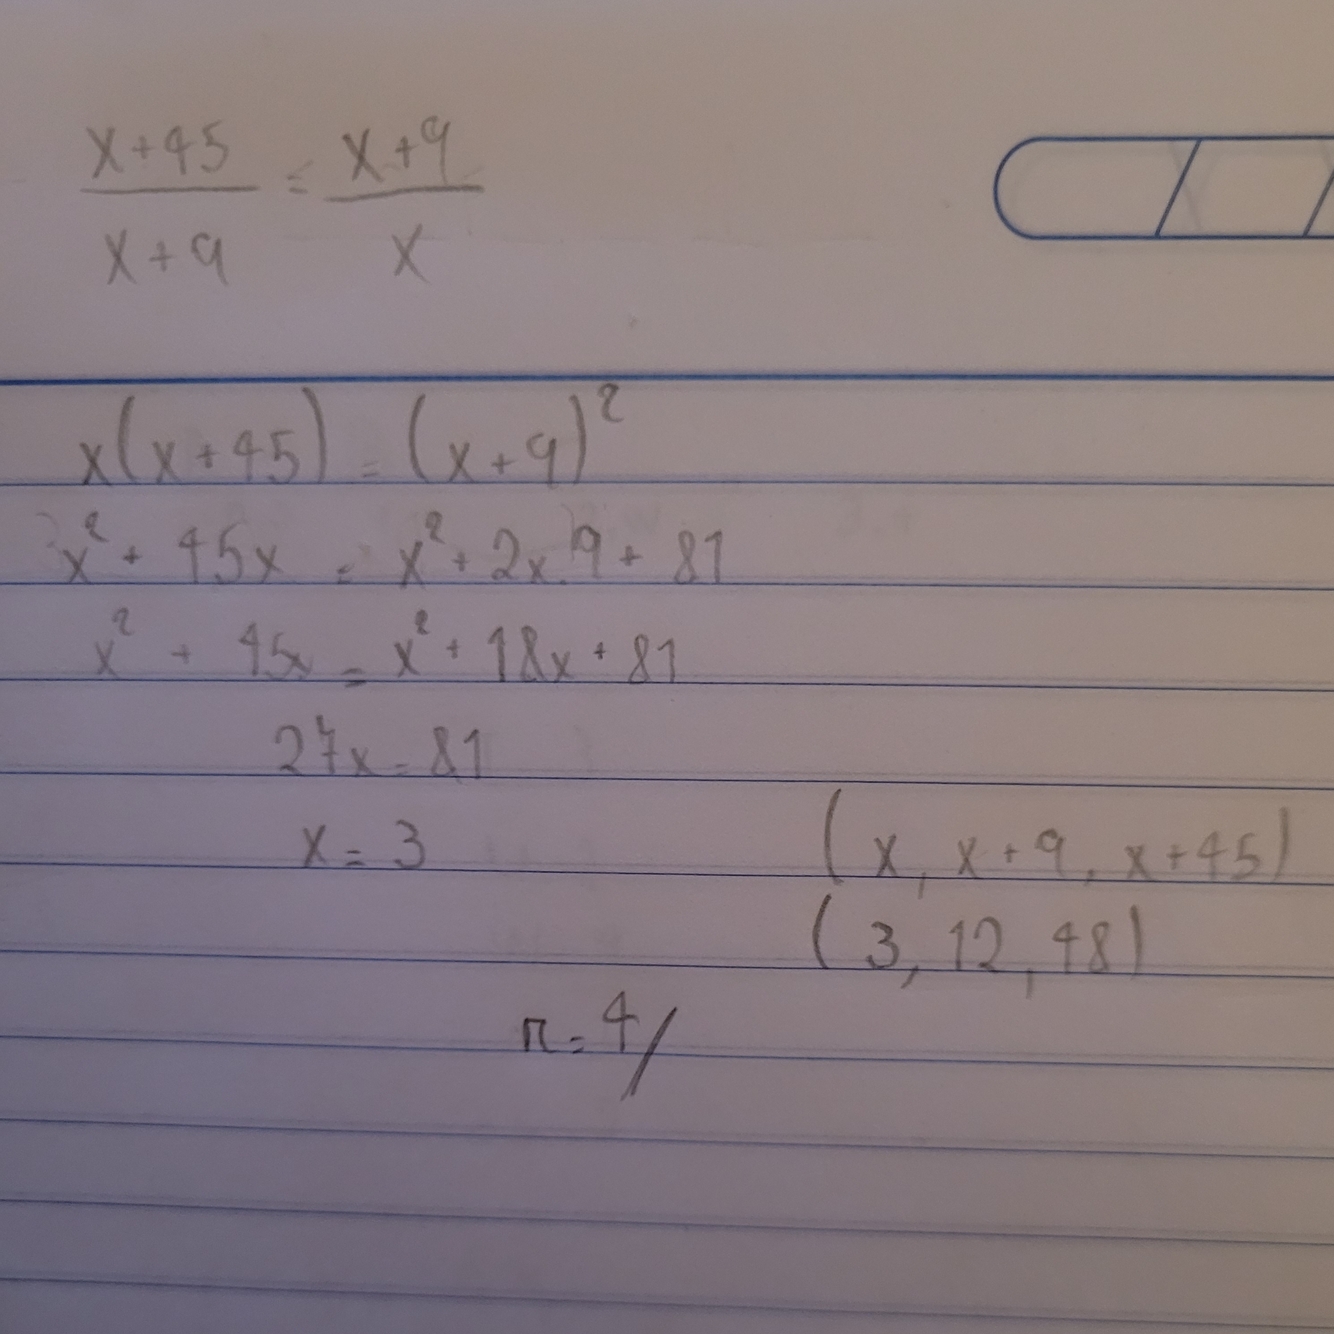 x+45/x+9 = x+9/x
x(x+45) = (x+9)²
x² + 45x = x² + 2x.9 + 81
x² + 45x = x² + 18x + 81
27x = 81
x = 3
(x, x+9, x+45)
(3, 12, 48)
r = 4/